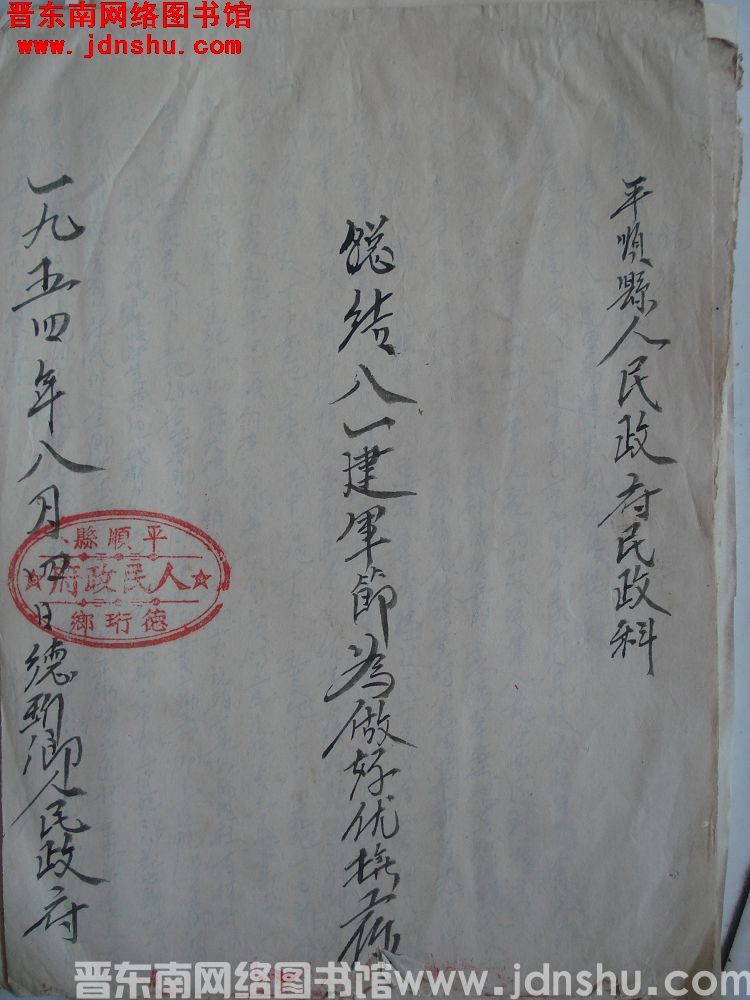 晋东南网络图书馆
www.jdnshu.com
平順縣人民政府民政科
總结八一建军節為做好优撫工作
一九五四年八月四日德珩鄉人民政府
平順縣
人民政府
德珩鄉
晋东南网络图书馆www.jdnshu.com